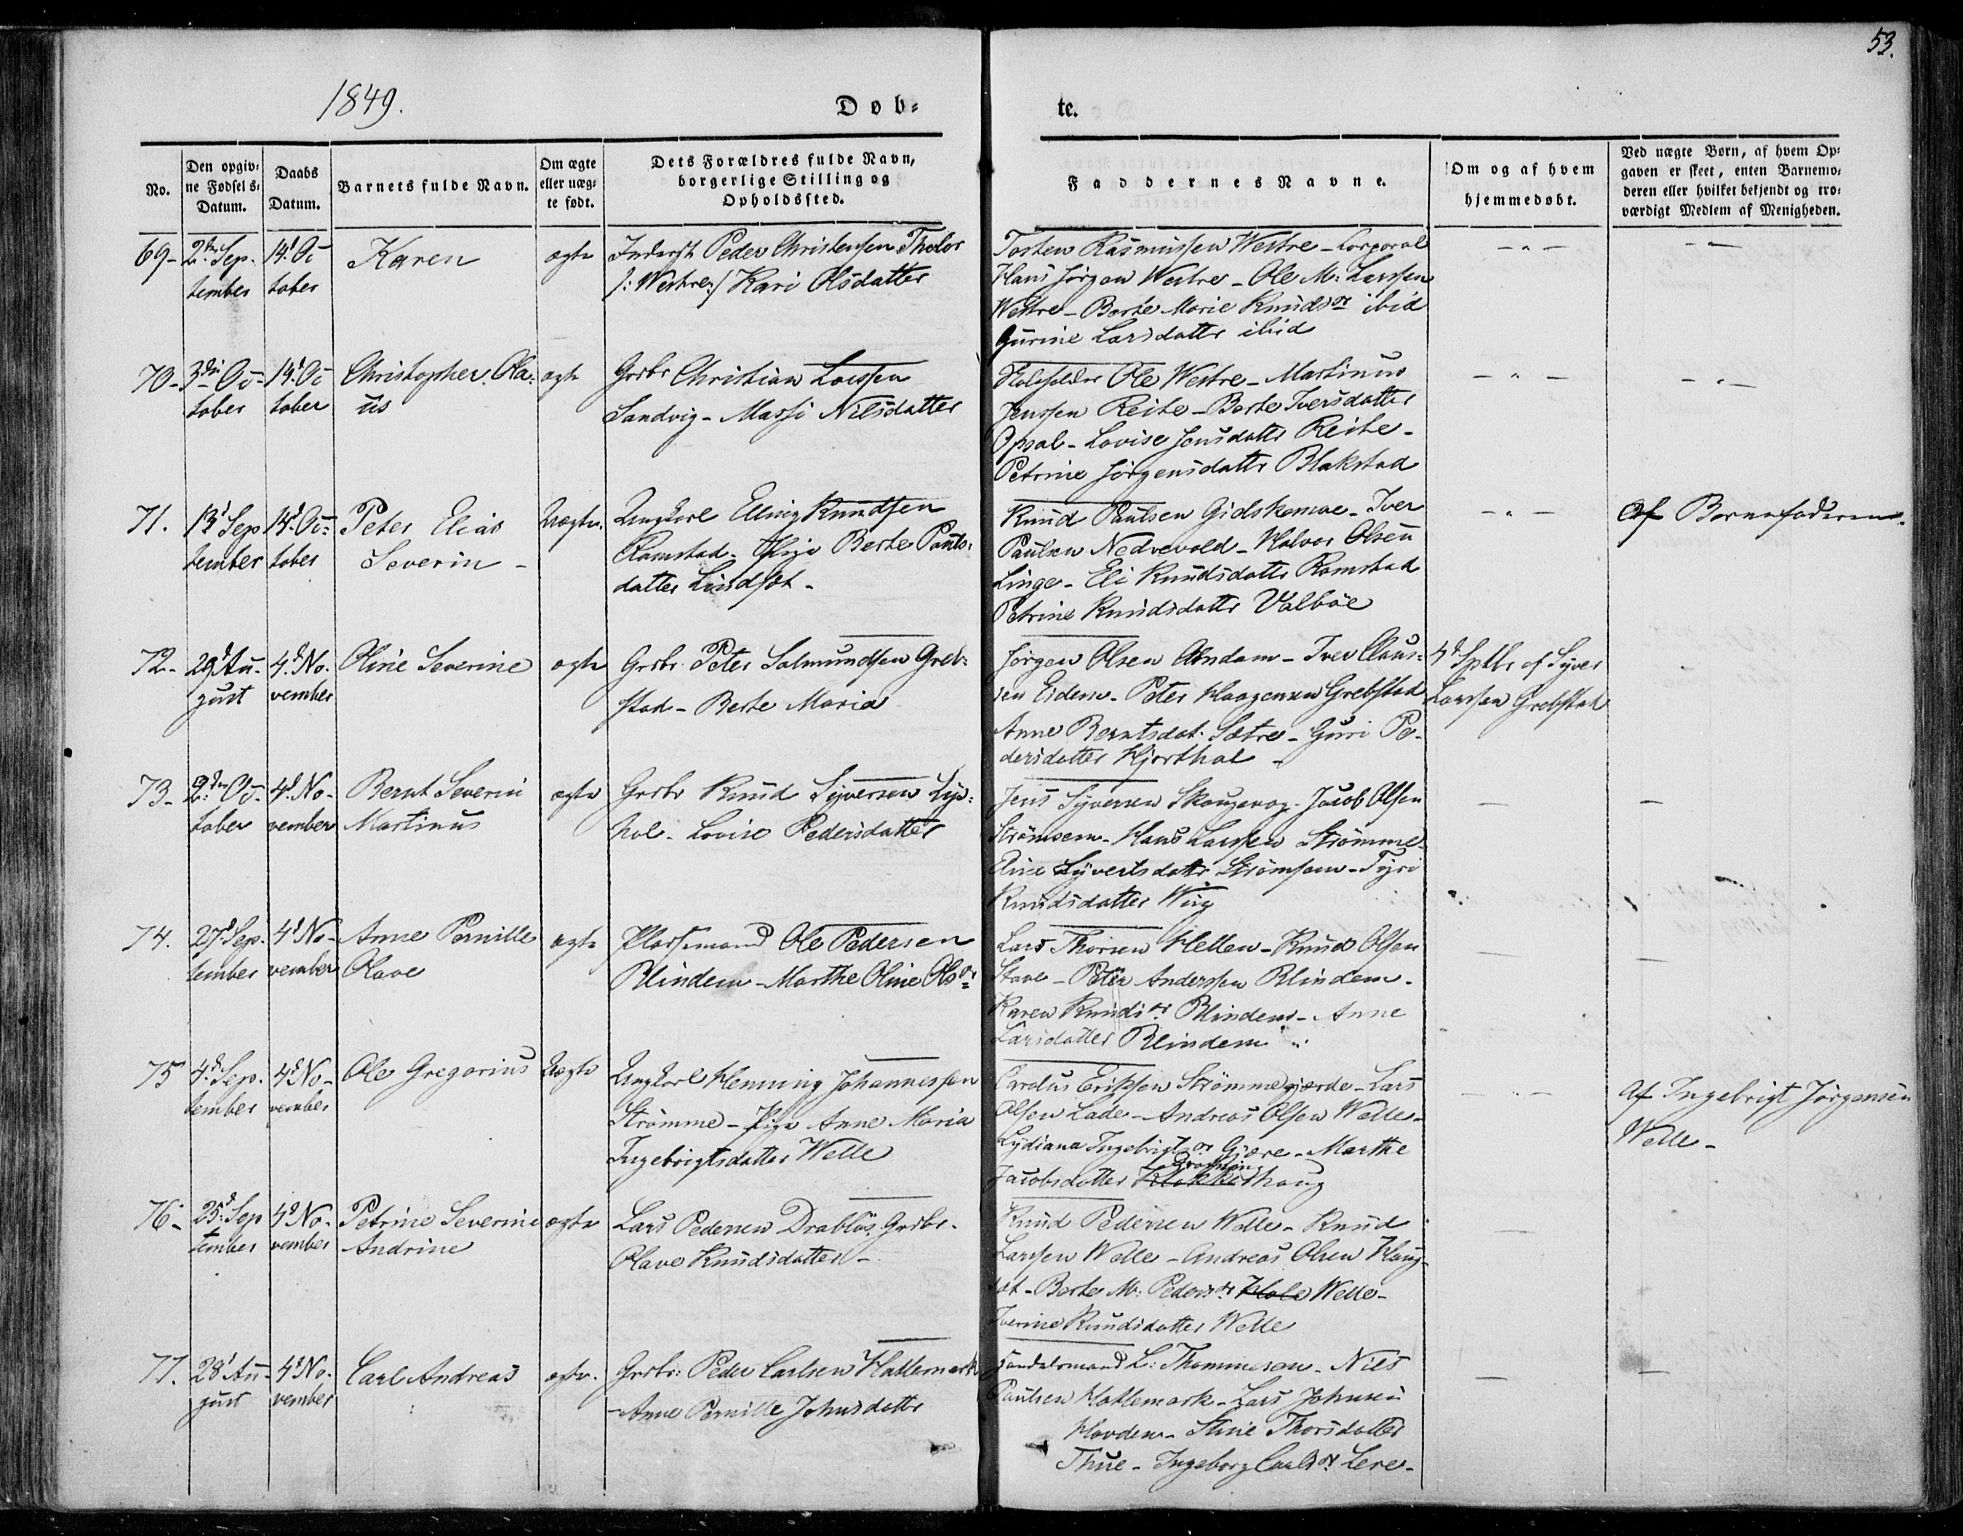 53.
1849.
Døb-
te.
No.
Den opgiv-
ne Fødsels-
Datum.
Daabs
Datum.
Barnets fulde Navn.
Om ægte
eller uæg-
te født.
Dets Forældres fulde Navn,
borgerlige Stilling og
Opholdssted.
Faddernes Navne.
Om og af hvem
hjemmedøbt.
Ved uægte Børn, af hvem Op-
gaven er skeet, enten Barnemo-
deren eller hvilket bekjendt og tro-
værdigt Medlem af Menigheden.
69-
2den Sep-
tember
14d Oc
tober
Karen
ægte
Inderst Peder Christensen
/: Westre:/ Kari Olsdatter
Torsten Rasmussen Westre - Corporal
Hans Jørgen Westre - Ole M: Larssen
Westre - Berte Marie Knudsdr ibid
Gurine Larsdatter ibid
70-
3die Oc-
tober
14d Oc
tober
Christopher Ola-
us
ægte
Grdbr Christian Larssen
Sandvig - Massi Nilsdatter
Skoleholder Ole Westre - Martinus
Jenssen Reite - Berte Iversdatter
Opsal - Lovise Jensdatter Reite -
Petrine Jørgensdatter Blakstad
71.
13d Sep
tember
14d Oc-
tober
Peter Elias
Severin -
Uægte
Ungkarl Elling Knudsen
Ramstad - Pige Berte Pauls-
datter Lindset -
Knud Paulsen Gidskemoe - Iver
Paulsen Nedrevold - Halvor Olsen
Linge - Eli Knudsdatter Ramstad
Petrine Knudsdatter Valbøe
Af Barnefaderen.
72-
29d Au-
gust
4d No-
vember
Oline Severine
ægte
Grdbr. Peter Salmundsen Greb-
stad - Berte Maria
Jørgen Olsen Amdam - Iver Claus-
sen Eidem - Peter Haagensen Grebstad
Anne Berntsdat. Sætre - Guri Pe-
dersdatter Hjorthol -
4d Sptbr af Syver
Larssen Grebstad
73-
2den Oc-
tober
4d No-
vember
Bernt Severin
Martinus
ægte
Grdbr Knud Syversen Lys-
hol - Lovise Pedersdatter
Jens Syversen Skougevog - Jacob Olsen
Strømsem - Hans Larssen Strømme
Syvertsdatter Strømsem -
Knudsdatter Wiig
74.
27d Sep-
tember
4d No-
vember
Anne Pernille
Olave
ægte
Pladsemand Ole Pedersen
Blindem - Marthe Oline Olsdr
Lars Thorsen Hellen - Knud Olsen
Stave - Peter Anderssen Blindem -
Karen Knudsdr Blindem - Anne
Larsdatter Blindem
75
4d Sep-
tember
4d No-
vember
Ole Gregorius
Uægte
Ungkarl Henning Johannessen
Strømme - Pige Anne Maria
Ingebrigtsdatter Welle
Carolus Erikssen Strømmegjerde - Lars
Olsen Lade - Andreas Olsen Welle -
Lydiana Ingebrigtsdr Gjære - Marthe
Jacobsdatter Klokkerhaug
Af Ingebrigt Jørgensen
Welle -
76-
25d Sep
tember
4d No-
vember
Petrine Severine
Andrine
ægte
Lars Pedersen Drabløs, Grdbr.
Olave Knudsdatter -
Knud Pedersen Welle - Knud
Larssen Welle - Andreas Olsen Haug-
set - Berte M: Pedersdr Hole Welle -
Iverine Knudsdatter Welle
77.
28d Au-
gust
4d No-
vember
Carl Andreas
ægte.
Grdbr: Peder Carlsen Hatlemark
- Anne Pernille Johnsdatter
Handelsmand L: Thommesen - Nils
Paulsen Hatlemark - Lars Johnsen
Hovden - Stine Thorsdatter
Thue - Ingeborg Carlsdr Lere -